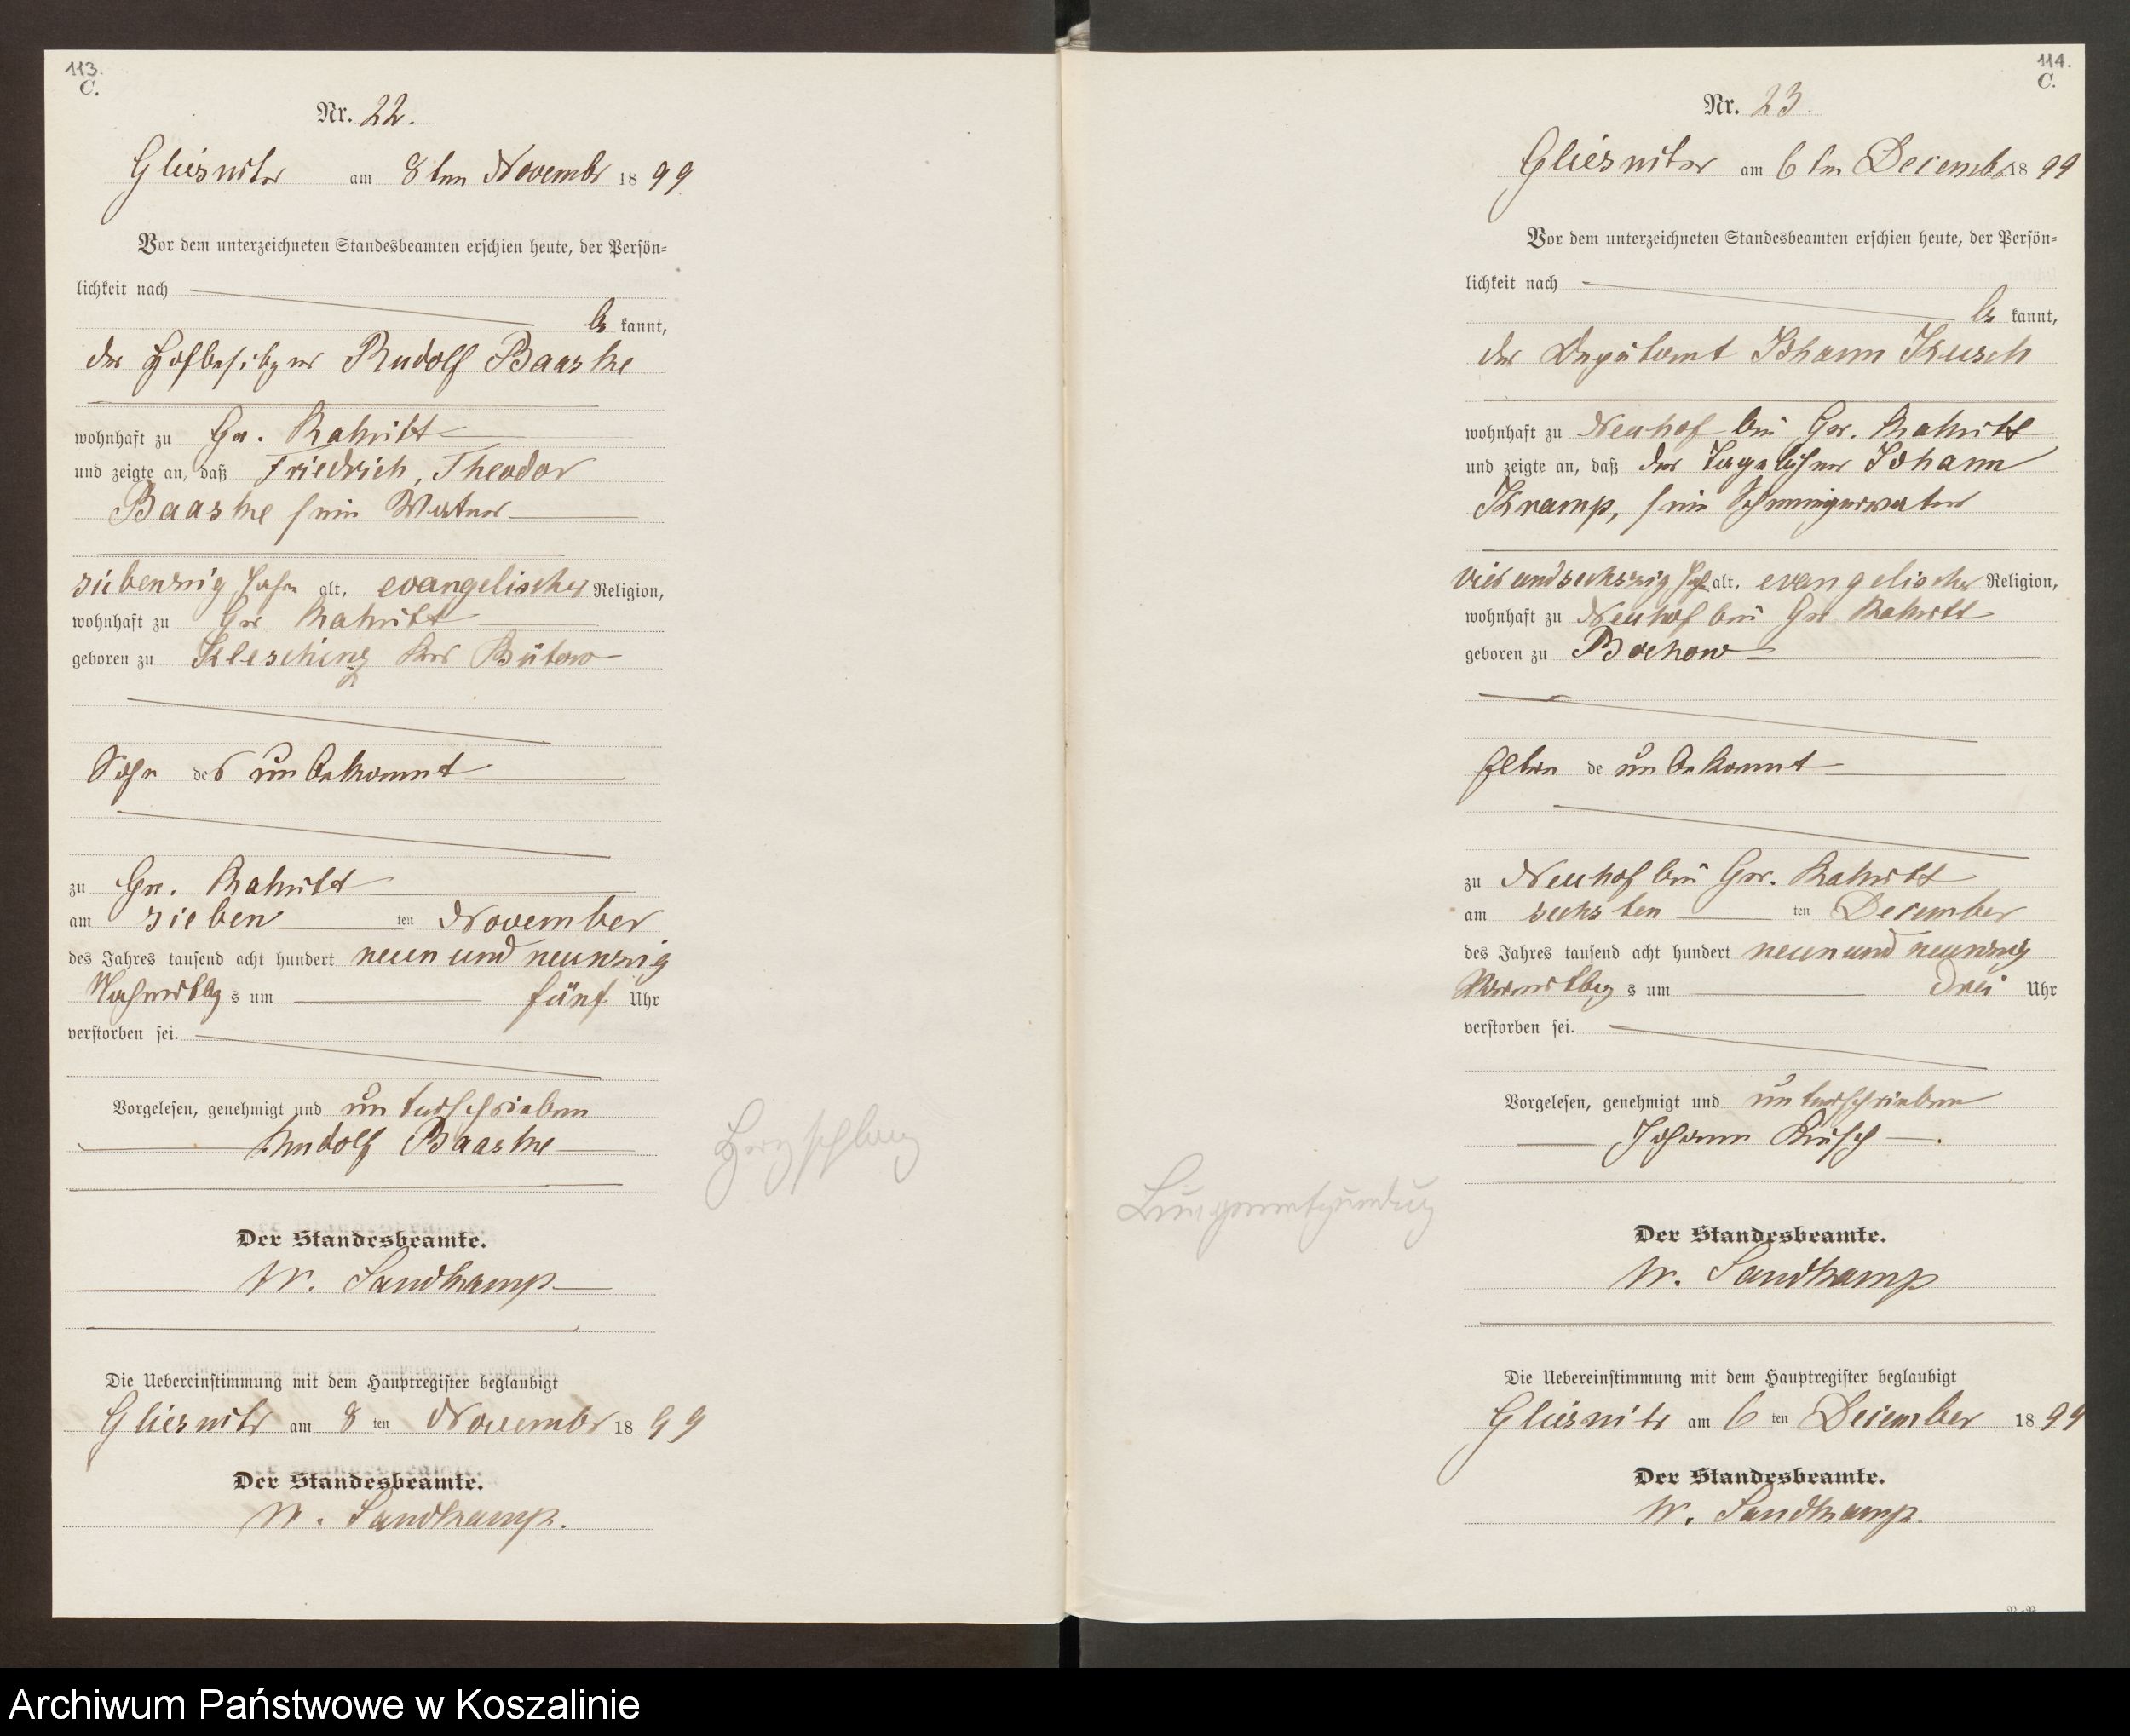 113.
C.
Nr. 22.
Gliesnitz am 8ten Novembr 1899
Vor dem unterzeichneten Standesbeamten erschien heute, der Persön-
lichkeit nach
be kannt,
der Hofbesitzer Rudolf Baaske
wohnhaft zu Gr. Rakitt
und zeigte an, daß Friedrich, Theodor
Baaske sein Vater
siebenzig Jahre alt, evangelischer Religion,
wohnhaft zu Gr Rakitt
geboren zu Kleschinz Krs Bütow
Sohn des unbekannt
zu Gr. Rakitt
am sieben ten November
des Jahres tausend acht hundert neun und neunzig
Nachmittags um fünf Uhr
verstorben sei.
Vorgelesen, genehmigt und unterschrieben
Rudolf Baaske
Herzschlag
Der Standesbeamte.
W. Sandkamp
Die Uebereinstimmung mit dem Hauptregister beglaubigt
Gliesnitz am 8 ten Novembr 1899
Der Standesbeamte.
W. Sandkamp.
114.
C.
Nr. 23.
Gliesnitz am 6ten Decembr 1899
Vor dem unterzeichneten Standesbeamten erschien heute, der Persön-
lichkeit nach
be kannt,
der Deputant Johann Kusch
wohnhaft zu Neuhof bei Gr. Rakitt
und zeigte an, daß der Tagelöhner Johann
Kramp, sein Schwiegervater
vier und sechszig Jahr alt, evangelischer Religion,
wohnhaft zu Neuhof bei Gr Rakitt
geboren zu Bochow
Eltern de unbekannt
zu Neuhof bei Gr. Rakitt
am sechsten ten December
des Jahres tausend acht hundert neun und neunzig
Vormittags um drei Uhr
verstorben sei.
Vorgelesen, genehmigt und unterschrieben
Johann Kusch
Lungenentzündung
Der Standesbeamte.
W. Sandkamp
Die Uebereinstimmung mit dem Hauptregister beglaubigt
Gliesnitz am 6 ten December 1899
Der Standesbeamte.
W. Sandkamp.
Archiwum Państwowe w Koszalinie